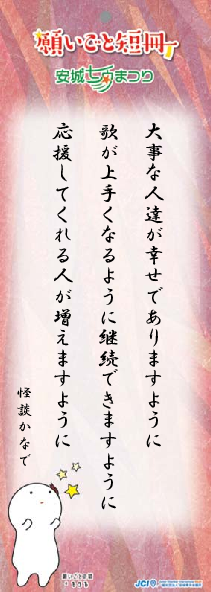 願いごと短冊
安城七夕まつり
大事な人達が幸せでありますように
歌が上手くなるように継続できますように
応援してくれる人が増えますように
怪談かなで
願いごと短冊
JCI